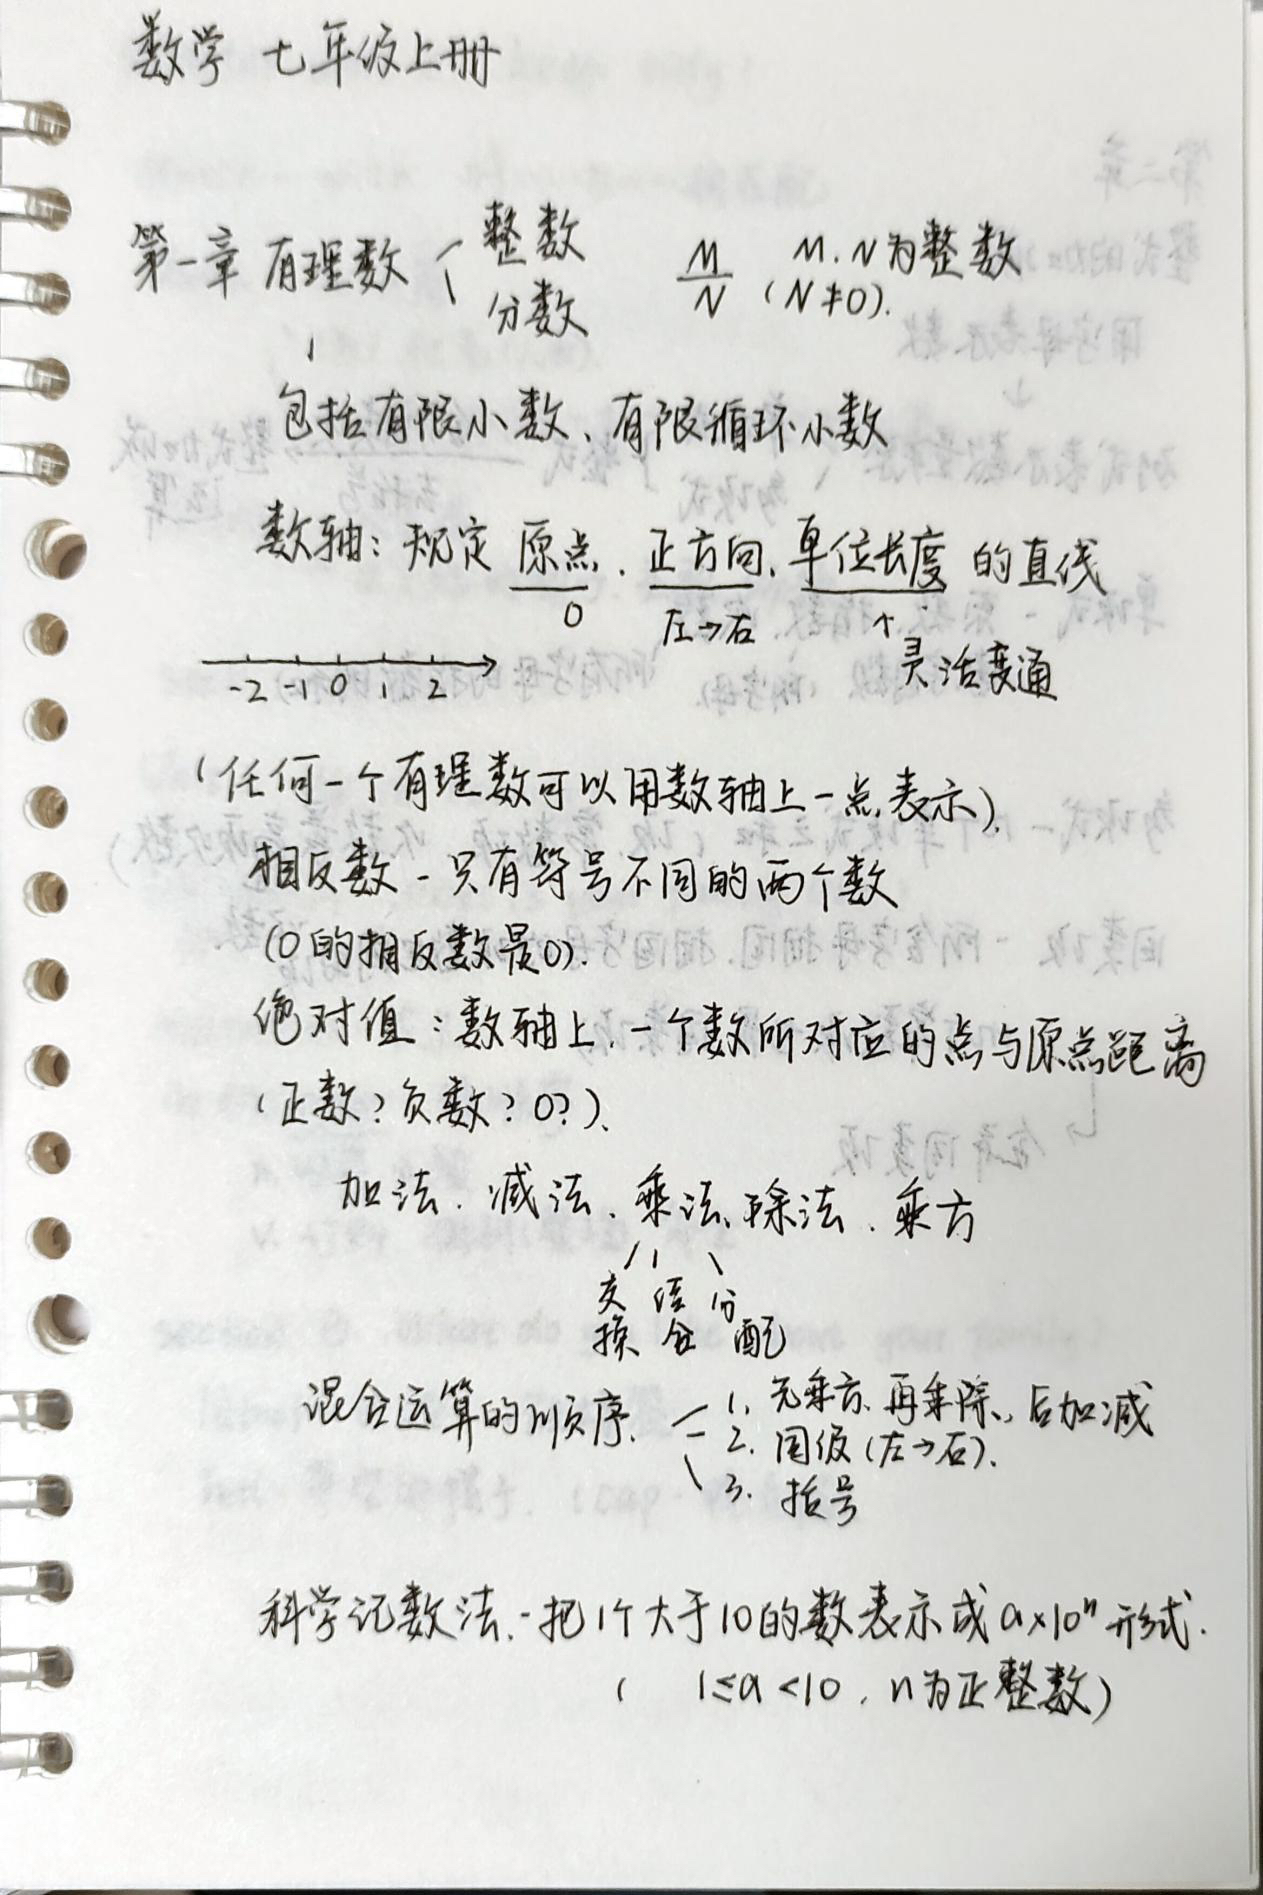 数学 七年级上册
第一章 有理数 整数 M/N M.N为整数
分数 (N≠0).
包括有限小数、有限循环小数
数轴: 规定 原点. 正方向. 单位长度 的直线
0 左→右 ↑
灵活变通
-2 -1 0 1 2
(任何一个有理数可以用数轴上一点表示).
相反数 - 只有符号不同的两个数
(0的相反数是0).
绝对值: 数轴上. 一个数所对应的点与原点距离
(正数? 负数? 0?).
加法. 减法. 乘法. 除法. 乘方
交换 结合 分配
混合运算的顺序. 1. 先乘方. 再乘除. 后加减
2. 同级(左→右).
3. 括号
科学记数法. - 把1个大于10的数表示成a×10ⁿ形式.
( 1≤a<10. n为正整数)